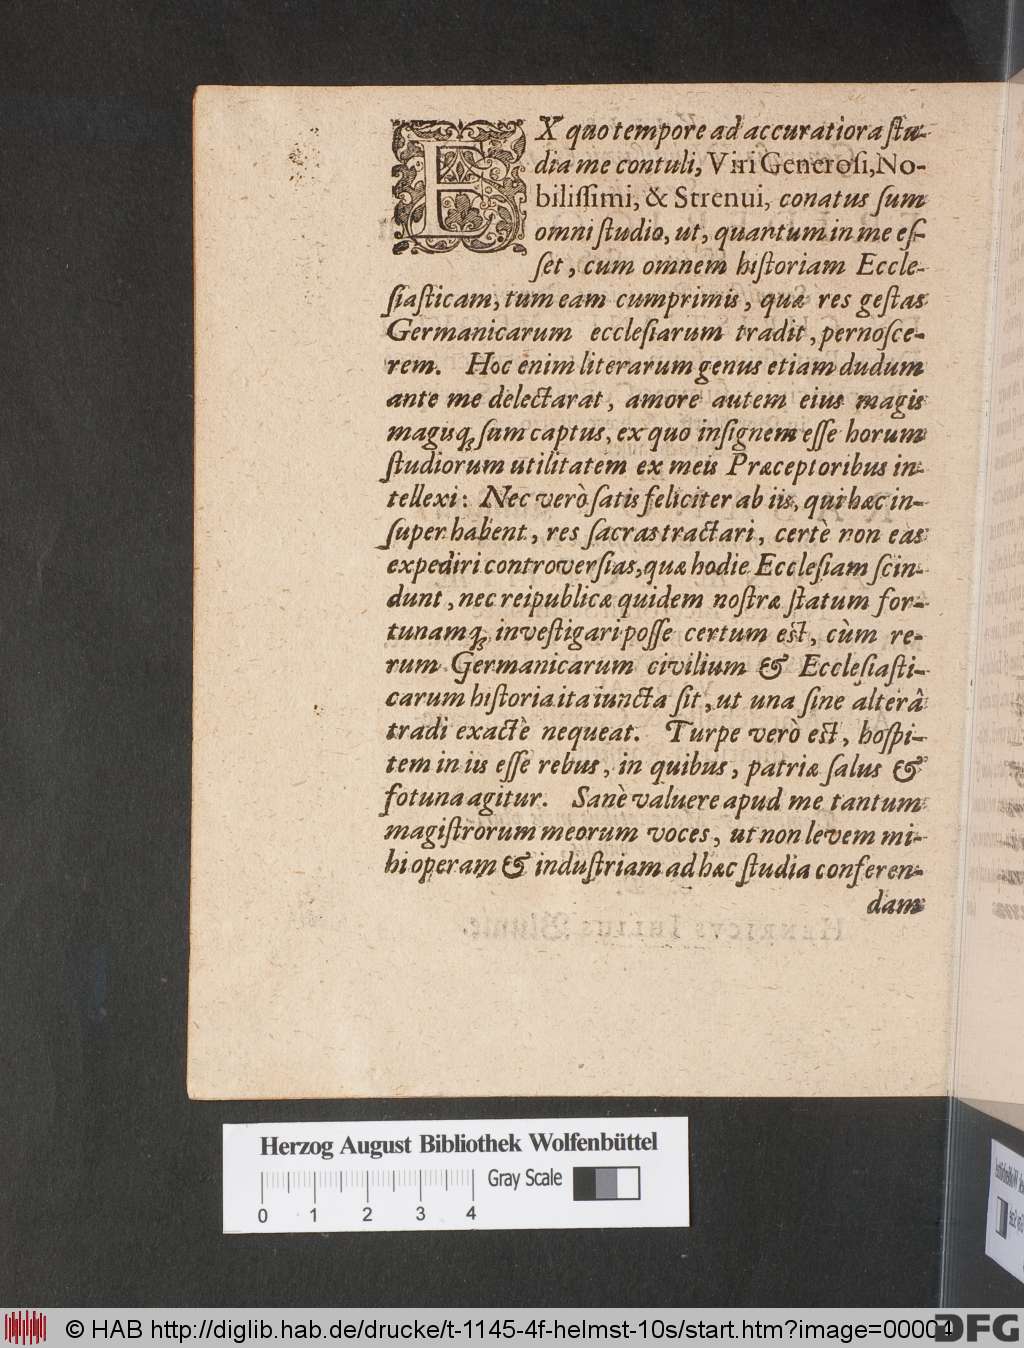 EX quo tempore ad accuratiora ſtu-
dia me contuli, Viri Generoſi, No-
biliſſimi, & Strenui, conatus ſum
omni ſtudio, ut, quantum in me eſ-
ſet, cum omnem hiſtoriam Eccle-
ſiaſticam, tum eam cumprimis, quæ res geſtas
Germanicarum eccleſiarum tradit, pernoſce-
rem. Hoc enim literarum genus etiam dudum
ante me delectarat, amore autem eius magis
magisq́; ſum captus, ex quo inſignem eſſe horum
ſtudiorum utilitatem ex meis Præceptoribus in-
tellexi: Nec verò ſatis feliciter ab iis, qui hæc in-
ſuper habent, res ſacras tractari, certè non eas
expediri controverſias, quæ hodie Eccleſiam ſcin-
dunt, nec reipublicæ quidem noſtræ ſtatum for-
tunamq́; inveſtigari poſſe certum eſt, cùm re-
rum Germanicarum civilium & Eccleſiaſti-
carum hiſtoria ita iuncta ſit, ut una ſine alterâ
tradi exactè nequeat. Turpe verò eſt, hoſpi-
tem in iis eſſe rebus, in quibus, patriæ ſalus &
fotuna agitur. Sanè valuere apud me tantum
magiſtrorum meorum voces, ut non levem mi-
hi operam & induſtriam ad hæc ſtudia conferen-
dam
Herzog August Bibliothek Wolfenbüttel
Gray Scale
0 1 2 3 4
© HAB http://diglib.hab.de/drucke/t-1145-4f-helmst-10s/start.htm?image=00004
DFG